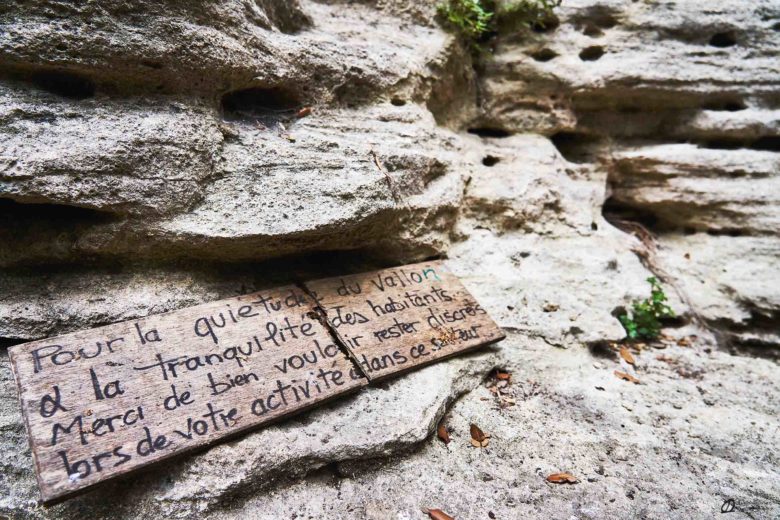 Pour la quiétude du vallon
& la tranquilité des habitants.
Merci de bien vouloir rester discrets
lors de votre activité dans ce secteur